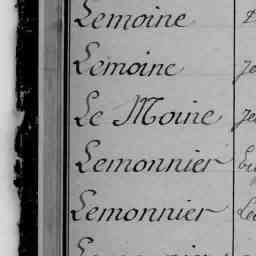 Lemoine
Lemoine
Le Moine
Lemonnier
Lemonnier